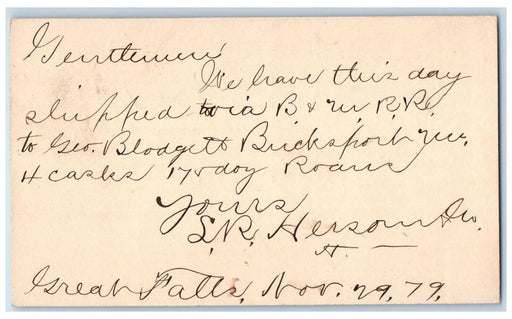 Gentlemen
We have this day
shipped via B & M. R.R.
to Geo. Blodgett Bucksport Me.
4 casks 170 doz Roans
Yours
S. R. Hersom
H.
Great Falls, Nov. 29, 79.